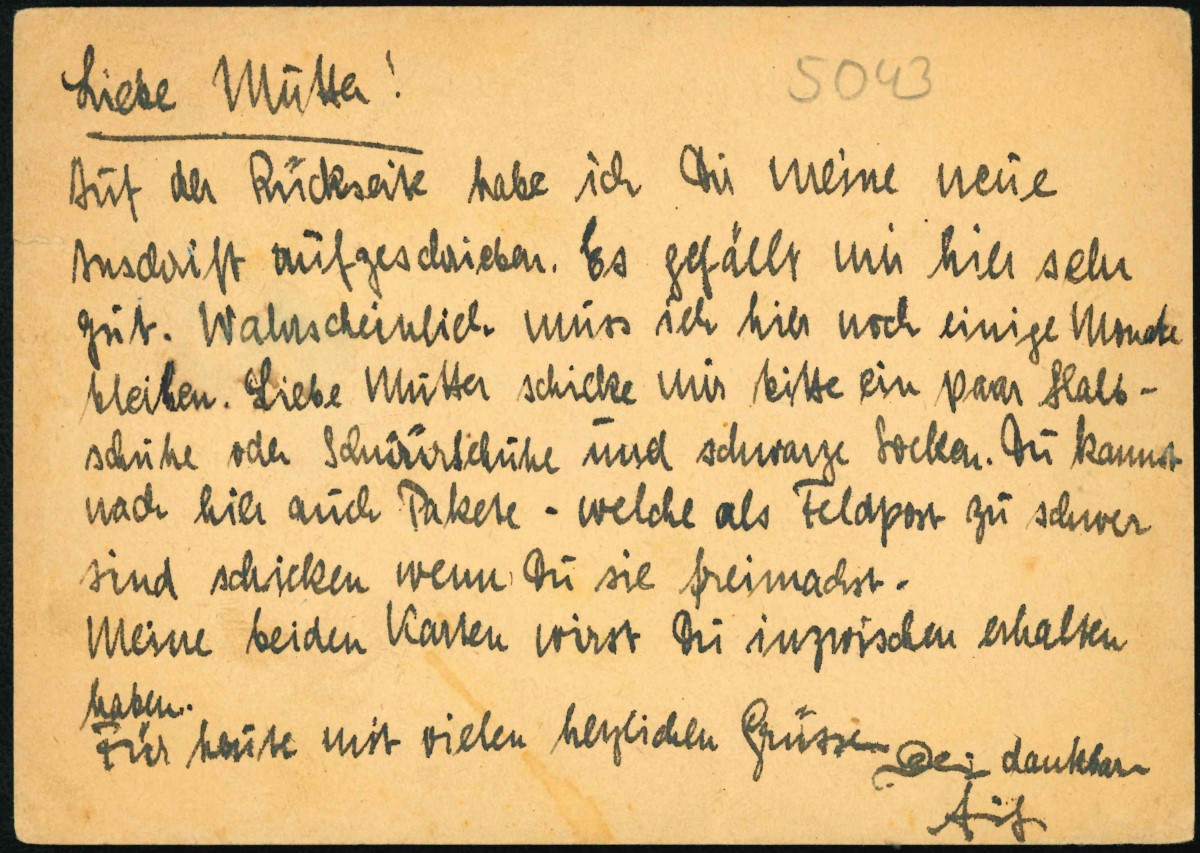 Liebe Mutter!
5043
Auf der Rückseite habe ich Dir meine neue
Anschrift aufgeschrieben. Es gefällt mir hier sehr
gut. Wahrscheinlich muss ich hier noch einige Monate
bleiben. Liebe Mutter schicke mir bitte ein paar Halb-
schuhe oder Schnürschuhe und schwarze Socken. Du kannst
nach hier auch Pakete - welche als Feldpost zu schwer
sind schicken wenn Du sie freimachst.
Meine beiden Karten wirst Du inzwischen erhalten
haben.
Für heute mit vielen herzlichen Grüssen
Dein dankbarer